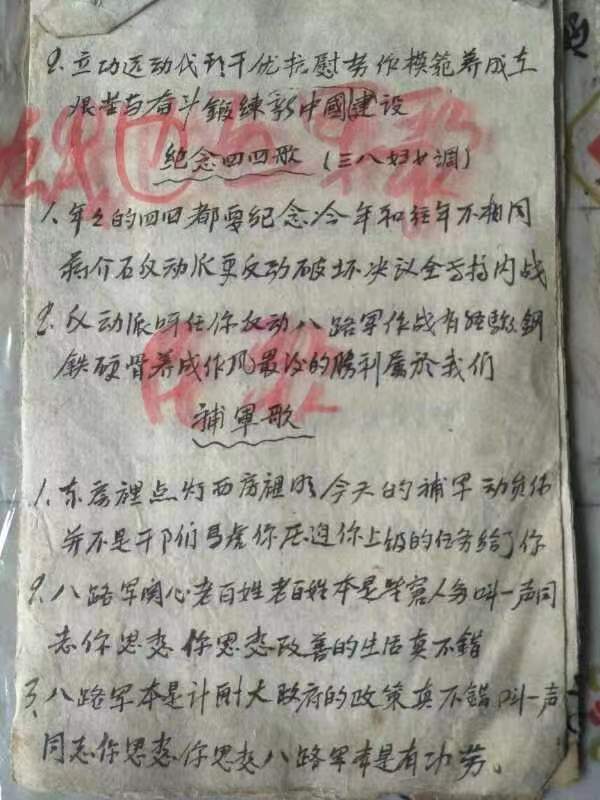 2. 立功运动代动干优抗慰劳作模范养成立
艰苦奋斗鍛練新中國建设
纪念四四歌 (三八妇女调)
1. 年々的四四都要纪念今年和往年不相同
蒋介石反动派要反动破坏决议全支持内战
2. 反动派呀任你反动八路军作战有经驗鋼
铁硬骨养成作风最后的勝利属於我们
補軍歌
1. 东房裡点灯西房裡明今天的補军动员
并不是干部们馬虎你压迫你上级的任务给了你
2. 八路军関心老百姓老百姓本是穷人多叫一声同
志你思想你思想改善的生活真不错
3. 八路军本是计刚大政府的政策真不错叫一声
同志你思想你思想八路军本是有功劳。